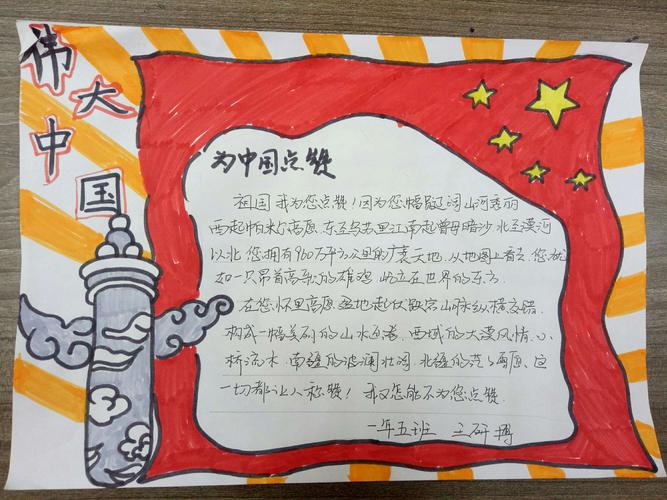 伟大中国
为中国点赞
祖国我为您点赞！因为您幅员辽阔山河秀丽
西起帕米尔高原 东至乌苏里江南起曾母暗沙 北至漠河
以北 您拥有960万平方公里的广袤天地.从地图上看去.您就
如一只昂首高歌的雄鸡 屹立在世界的东方.
在您怀里高原 盆地起伏 山脉纵横交错.
构成一幅美丽的山水画卷. 西域的大漠风情.小
桥流水.南疆的波澜壮阔.北疆的 雪原、这
一切都让人称赞！ 我又怎能不为您点赞
一年五班 王研博